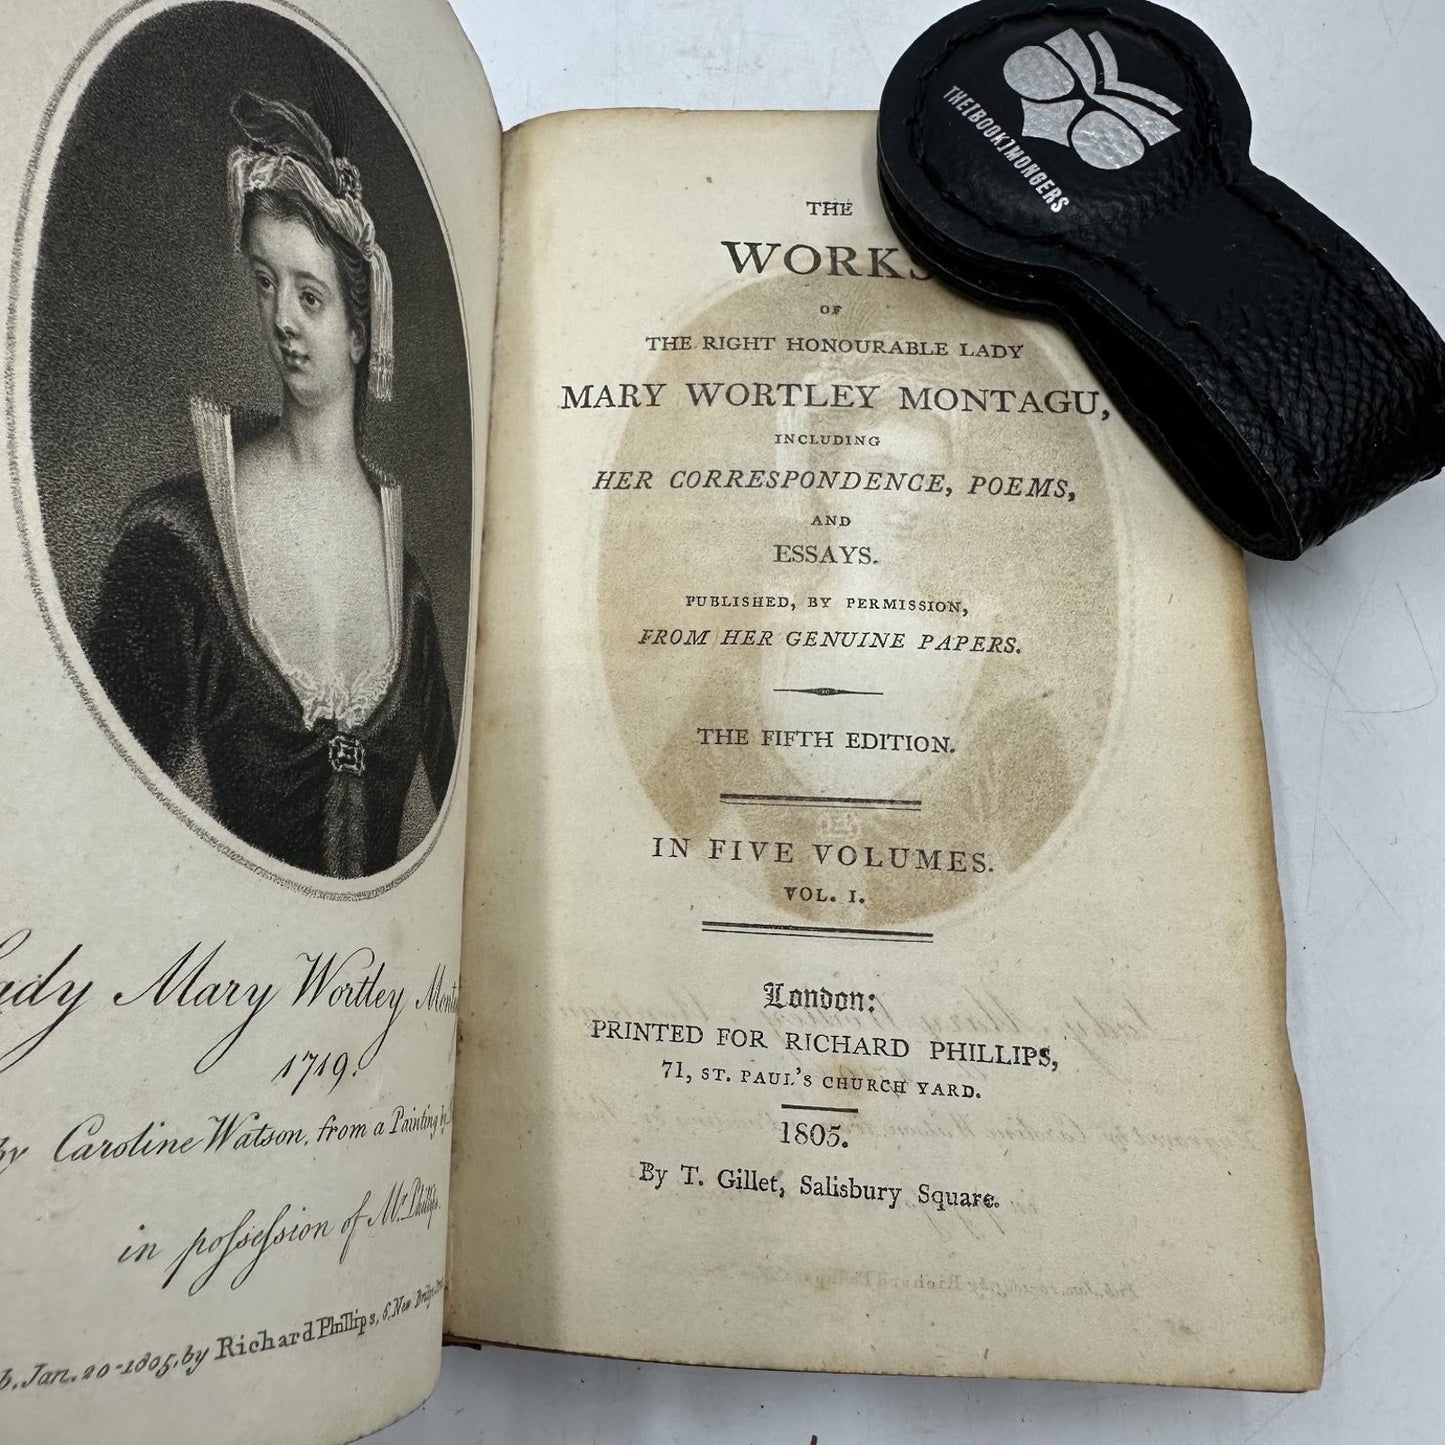 Lady Mary Wortley
1719.
By Caroline Watson, from a Painting by
in poſseſsion of Mr. Phillips.
Jan. 20-1805, by Richard Phillips, 6, New Bridge
THE
WORKS
OF
THE RIGHT HONOURABLE LADY
MARY WORTLEY MONTAGU,
INCLUDING
HER CORRESPONDENCE, POEMS,
AND
ESSAYS.
PUBLISHED, BY PERMISSION,
FROM HER GENUINE PAPERS.
THE FIFTH EDITION.
IN FIVE VOLUMES.
VOL. I.
London:
PRINTED FOR RICHARD PHILLIPS,
71, ST. PAUL'S CHURCH YARD.
1805.
By T. Gillet, Salisbury Square.
THE[BOOK]MONGERS